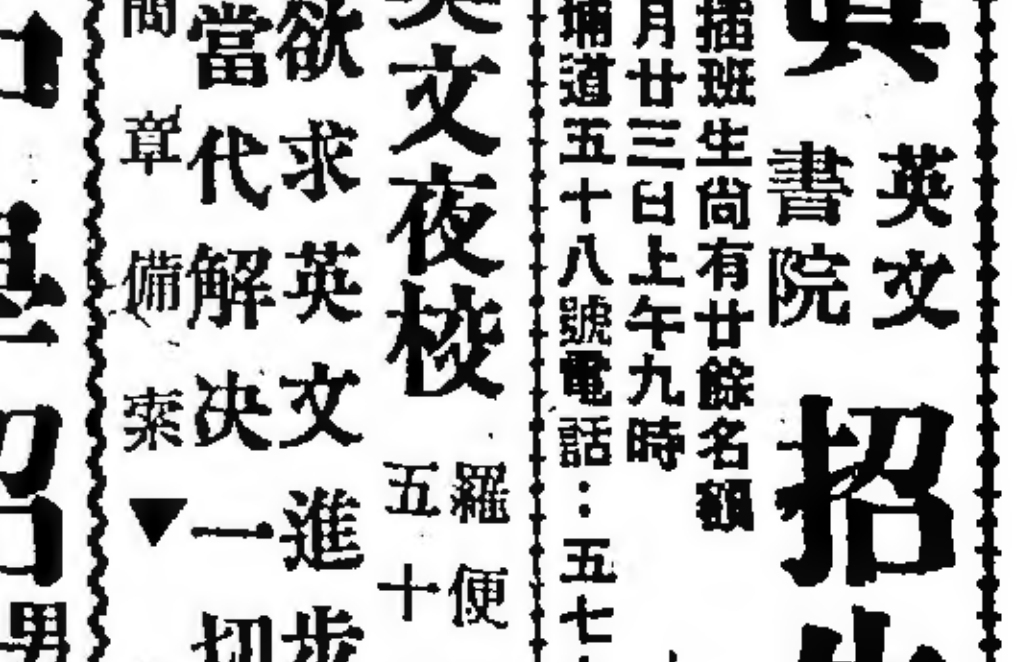 英文
書院
招
插班生尚有廿餘名額
月廿三日上午九時
埔道五十八號電話：五七
英文夜校
羅便
五十
欲求英文進步
當代解決一切
簡章備索▼
招
男